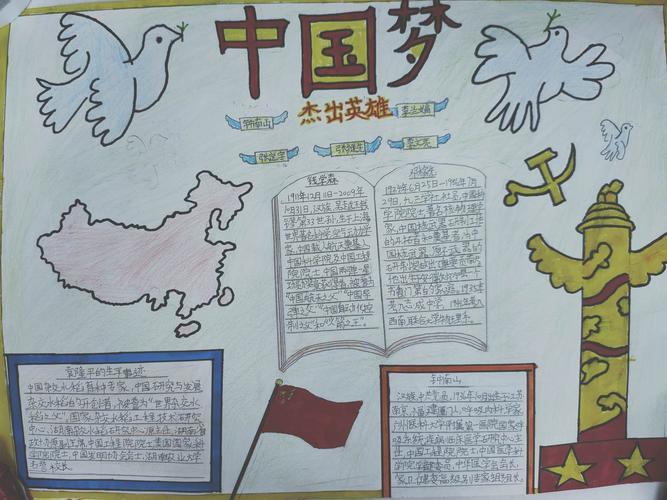 中国梦
杰出英雄
钟南山
李兰娟
张定宇
张伯礼
李文亮
钱学森
1911年12月11日-2009年
10月31日,汉族,吴越王钱
镠第33世孙,生于上海
世界著名科学家,空气动力学
家,中国载人航天奠基人,
中国科学院及中国工程
院院士,中国两弹一星
功勋奖章获得者,被誉为
"中国航天之父""中国导
弹之父""中国自动化控
制之父"和"火箭之王"。
邓稼先
1924年6月25日-1986年7月
29日,九三学社社员,中国科
学院院士,著名核物理学
家,中国核武器研制工作
的开拓者和奠基者,为中
国核武器、原子武器的
研发
西南联合大学物理系。
袁隆平的生平事迹
中国杂交水稻育种专家,中国研究与发展
杂交水稻的开创者,被誉为"世界杂交水
稻之父"。国家杂交水稻工程技术研究
中心、湖南杂交水稻研究中心原主任,湖南省
政协原副主席,中国工程院院士,美国国家科
学院院士,中国发明协会会士,湖南农业大学
校长。
钟南山
汉族,中共党员,1936年10月出生于江苏
南京,福建厦门人,呼吸内科学家
广州医科大学附属第一医院国家呼
吸系统疾病临床医学研究中心主
任,中国工程院院士,中国医学科
学院学部委员,中华医学会会长,
家卫健委高级别专家组组长。